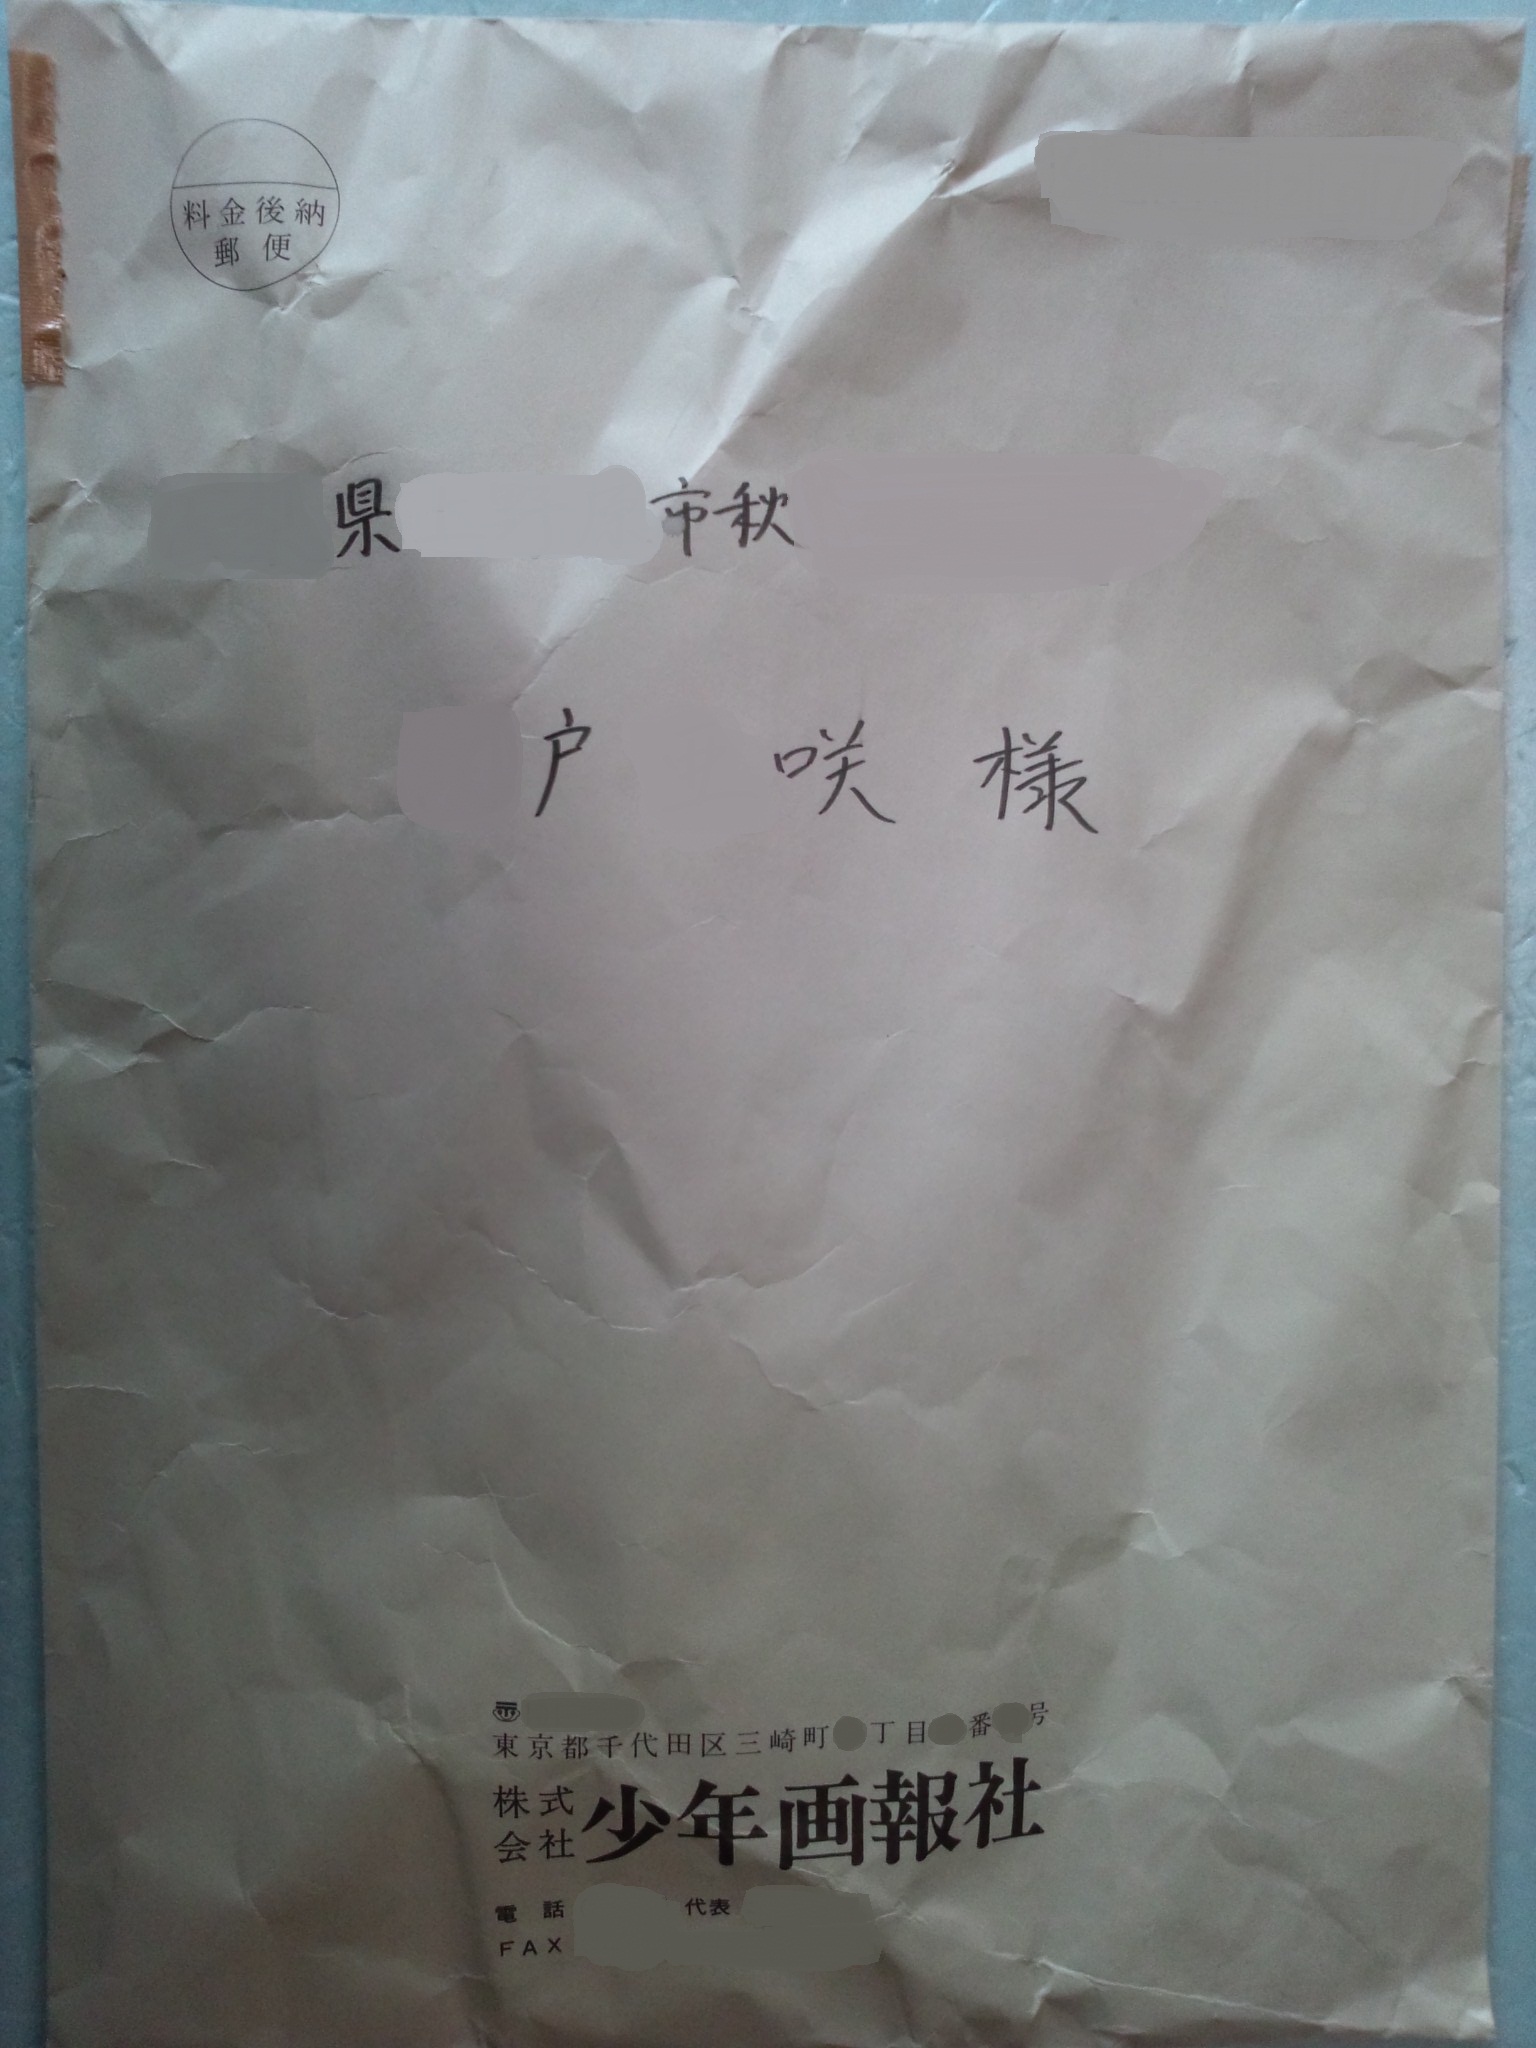 料金後納
郵便
県 市秋
戸 咲 様
〠
東京都千代田区三崎町 丁目 番 号
株式会社 少年画報社
電話 代表
FAX